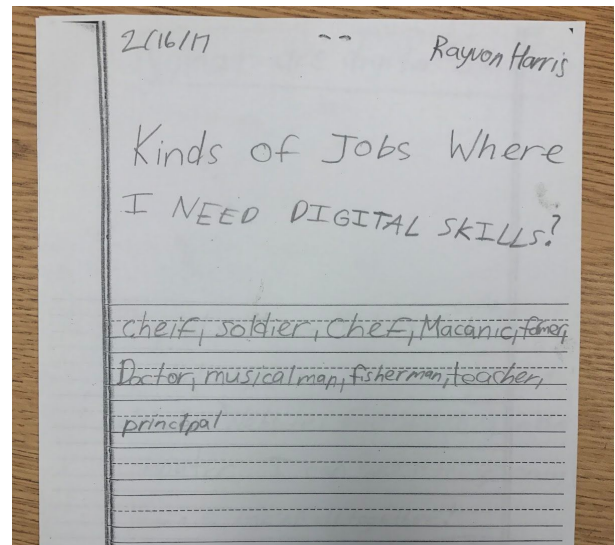 2/16/17 -- Rayvon Harris
Kinds of Jobs Where
I NEED DIGITAL SKILLS?
cheif, soldier, Chef, Macanic, famer,
Doctor, musical man, fisherman, teacher,
principal